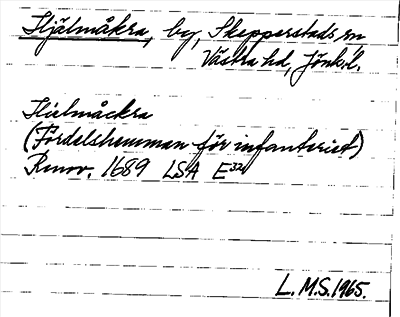 Hjälmåkra, by, Skepperstads sn
Västra hd, Jönk.l.
Hielmåckra
(Fördelshemman för infanteriet)
Renov. 1689 LSA E32
L.M.S. 1965.